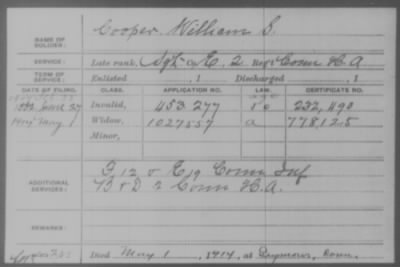 Cooper, William S.
NAME OF SOLDIER:
SERVICE: Late rank, Sgt Co E, 2 Regt Conn H.A.
TERM OF SERVICE: Enlisted , 1 Discharged , 1
DATE OF FILING. CLASS. APPLICATION NO. LAW. CERTIFICATE NO.
1882 27 Invalid, 453 277 232,490
May 1 Widow, 1027557 a 778125
Minor,
ADDITIONAL SERVICES: G 12 & E 19 Conn Inf
B & D 2 Conn H.A.
REMARKS:
Died May 1, 1914, at Seymour, Conn.